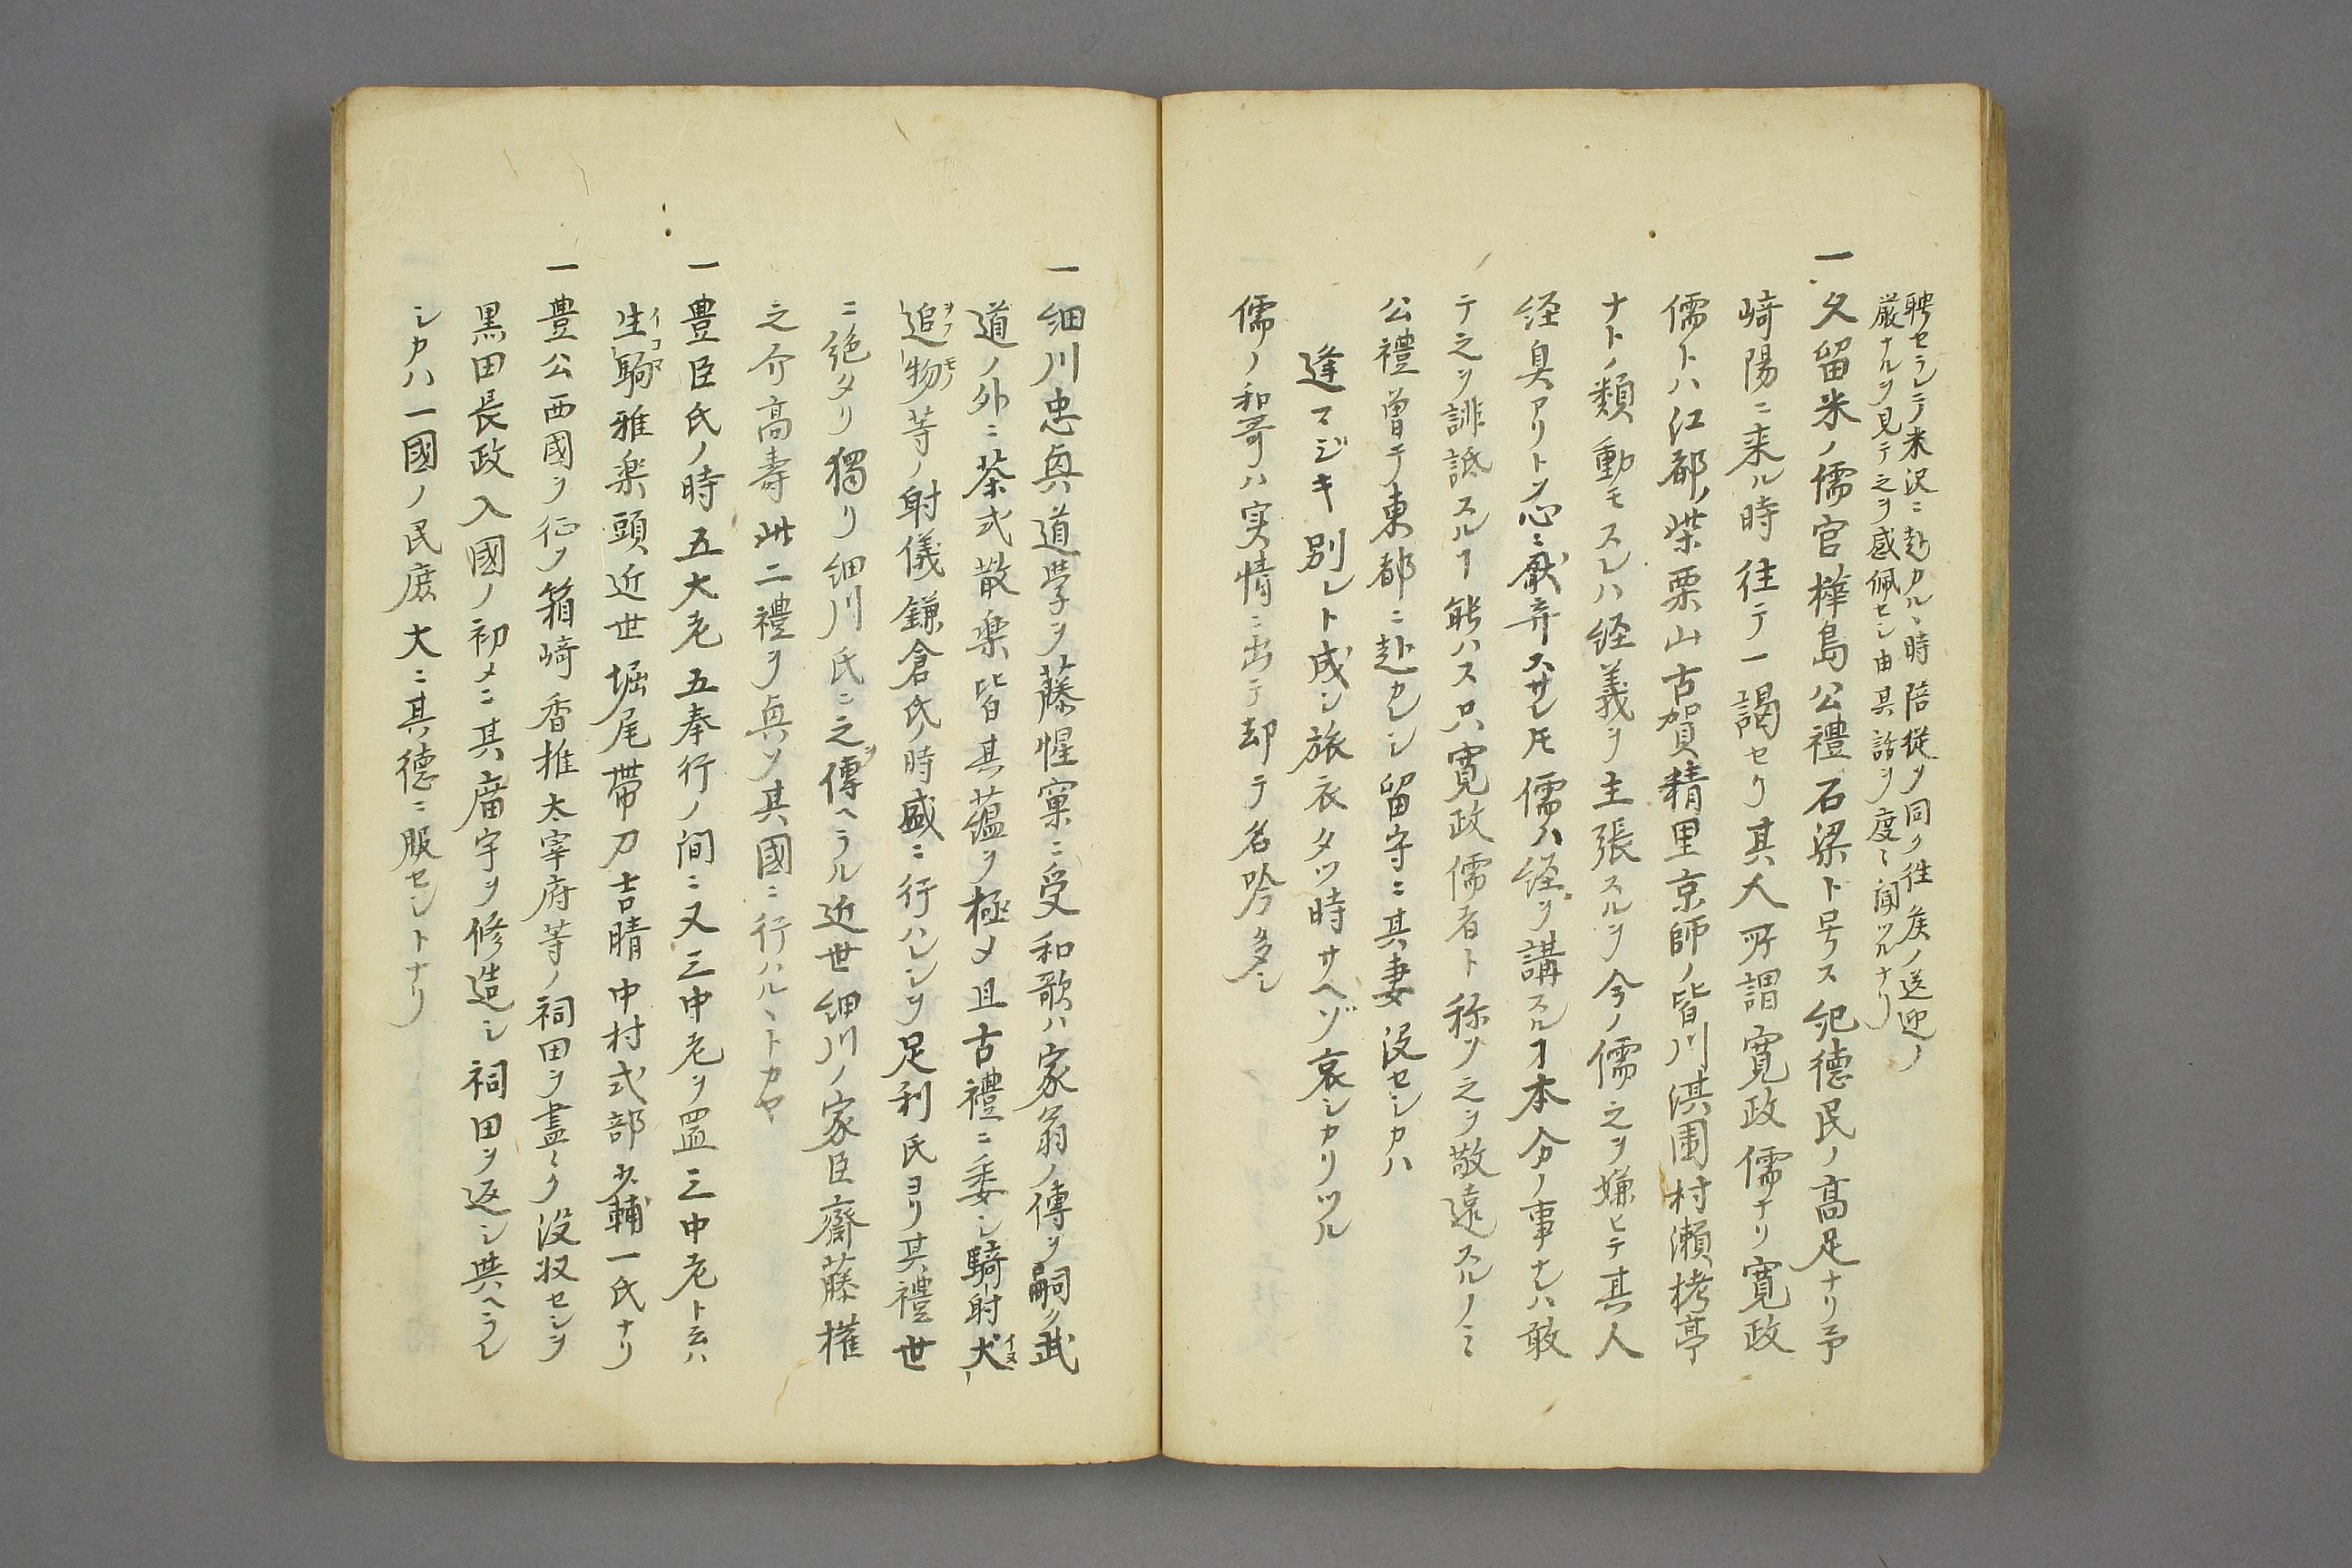 聘セラレテ米沢ニ赴カル、時陪従ヲ同ク往矦ノ送迎ノ
厳ナルヲ見テ之ヲ感佩セシ由其話ヲ度〻聞ツルナリ
一久留米ノ儒官樺島公禮石梁ト号ス紀德民ノ高足ナリ予
崎陽ニ来ル時往テ一謁セリ其人所謂寛政儒ナリ寛政
儒トハ江都ノ柴栗山古賀精里京師ノ皆川淇園村瀬栲亭
ナトノ類動モスレハ経義ヲ主張スルヲ今ノ儒之ヲ嫌ヒテ其人
経臭アリトソ心ニ厭弃スサレ𪜈儒ハ経ヲ講スルヿ本分ノ事ナレハ敢
テ之ヲ誹詆スルヿ能ハス只寛政儒者ト称ソ之ヲ敬遠スルノミ
公禮曽テ東都ニ赴カレシ留守ニ其妻没セシカハ
逢マジキ別レト成シ旅衣タツ時サヘゾ哀シカリツル
儒ノ和哥ハ実情ニ出テ却テ名吟多シ
一細川忠興道学ヲ藤惺窠ニ受和歌ハ家翁ノ傳ヲ嗣ク武
道ノ外ニ茶式散楽皆其蘊ヲ極メ且古禮ニ委シ騎射犬イヌ
追ヲフ物モノ等ノ射儀鎌倉氏ノ時盛ニ行ハレシヲ足利氏ヨリ其禮世
ニ絶タリ獨リ細川氏ニ之ヲ傳ヘラル近世細川ノ家臣齋藤権
之介高壽此二禮ヲ興ソ其國ニ行ハル、トカヤ
一豊臣氏ノ時五大老五奉行ノ間ニ又三中老ヲ置三中老ト云ハ
生駒イコマ雅楽頭近世堀尾帯刀吉晴中村式部少輔一氏ナリ
一豊公西國ヲ征ソ箱崎香推太宰府等ノ祠田ヲ盡〻ク没収セシヲ
黒田長政入國ノ初メニ其廟宇ヲ修造シ祠田ヲ返シ與ヘラレ
シカハ一國ノ民庶大ニ其德ニ服セシトナリ